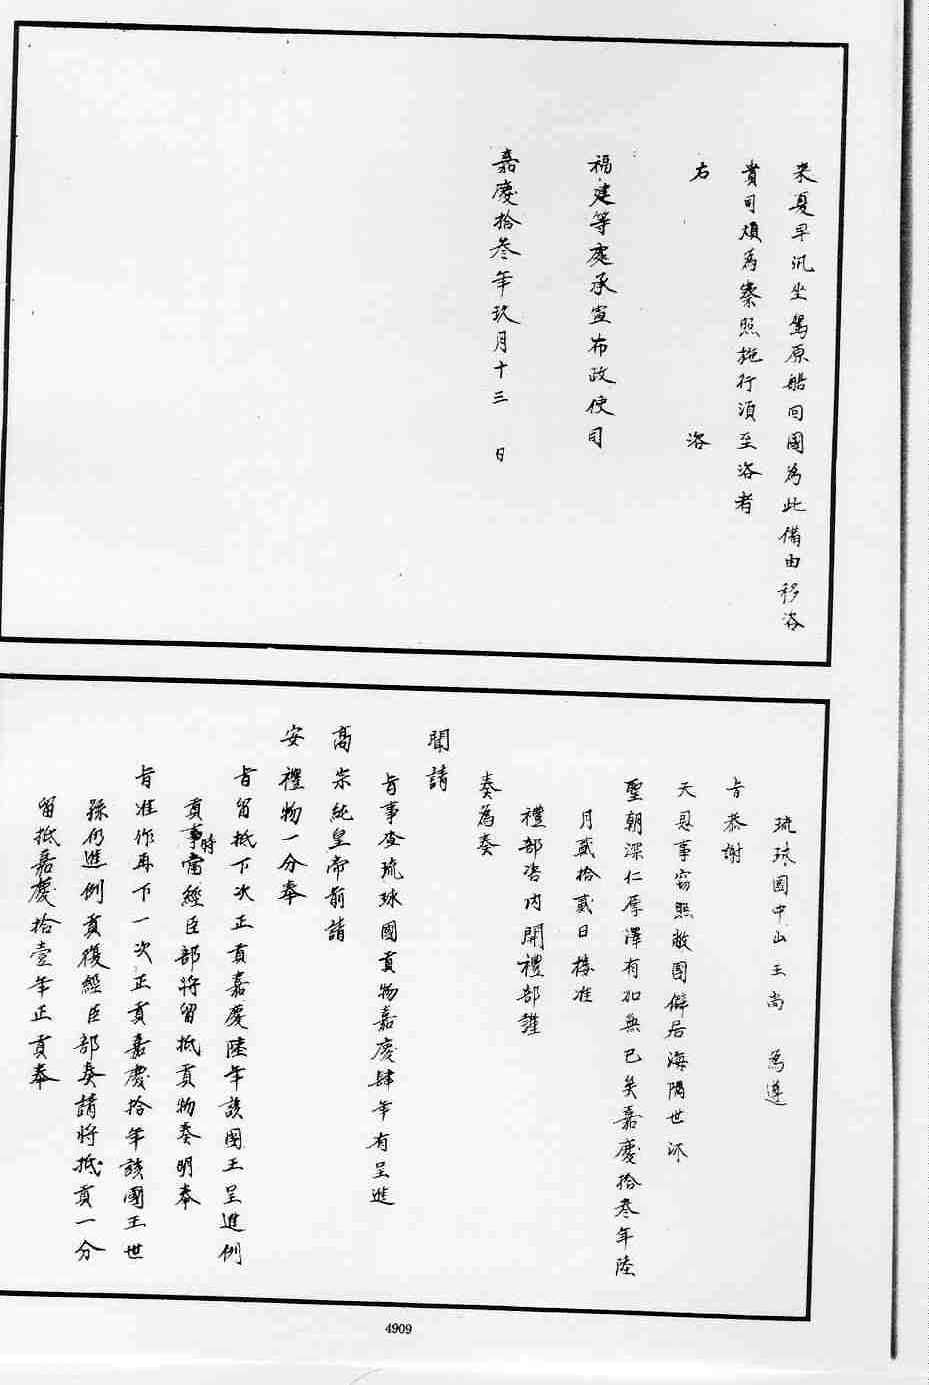 來夏早汛坐駕原船回國為此備由移咨
貴司煩為察照施行須至咨者
右　　　咨
福建等處承宣布政使司
嘉慶拾叁年玖月十三　日
琉球國中山王尚　為遵
旨恭謝
天恩事窃照敝國僻居海隅世沐
聖朝深仁厚澤有加無已矣嘉慶拾叁年陸
月貳拾貳日接准
禮部咨內開禮部謹
奏為奏
聞請
旨事查琉球國貢物嘉慶肆年有呈進
高宗純皇帝前請
安禮物一分奉
旨留抵下次正貢嘉慶陸年該國王呈進例
貢事時當經臣部將留抵貢物奏明奉
旨准作再下一次正貢嘉慶拾年該國王世
孫仍進例貢復經臣部奏請將抵貢一分
留抵嘉慶拾壹年正貢奉
4909